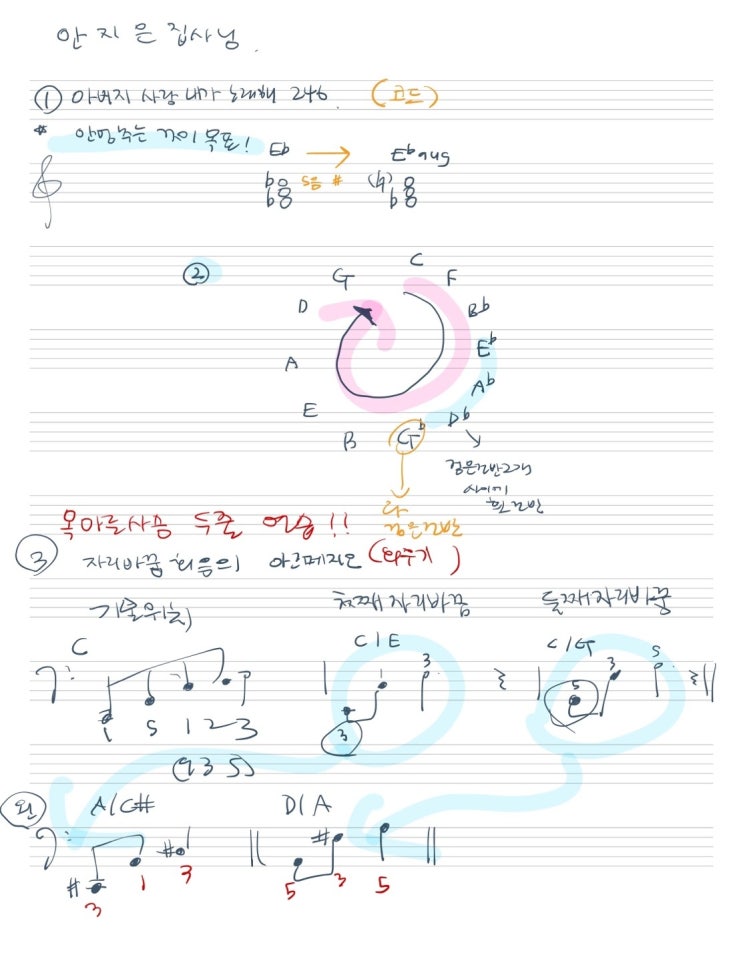 안 지 은 집사님.
① 아버지 사랑 내가 노래해 246. (코드)
* 안멈추는 것이 목표!
E♭ → E♭aug
5음 #
②
C
F
B♭
E♭
A♭
D♭
G♭
B
E
A
D
G
검은건반2개
사이의
흰건반
다
검은건반
목마른사슴 두줄 연습!!
③ 자리바꿈 화음의 아르페지오 (화주기)
기본위치 첫째자리바꿈 둘째자리바꿈
C C/E C/G
1 5 1 2 3 3 3 5 3 5
(9 3 5)
왼 A/C# D/A
3 1 3 5 3 5